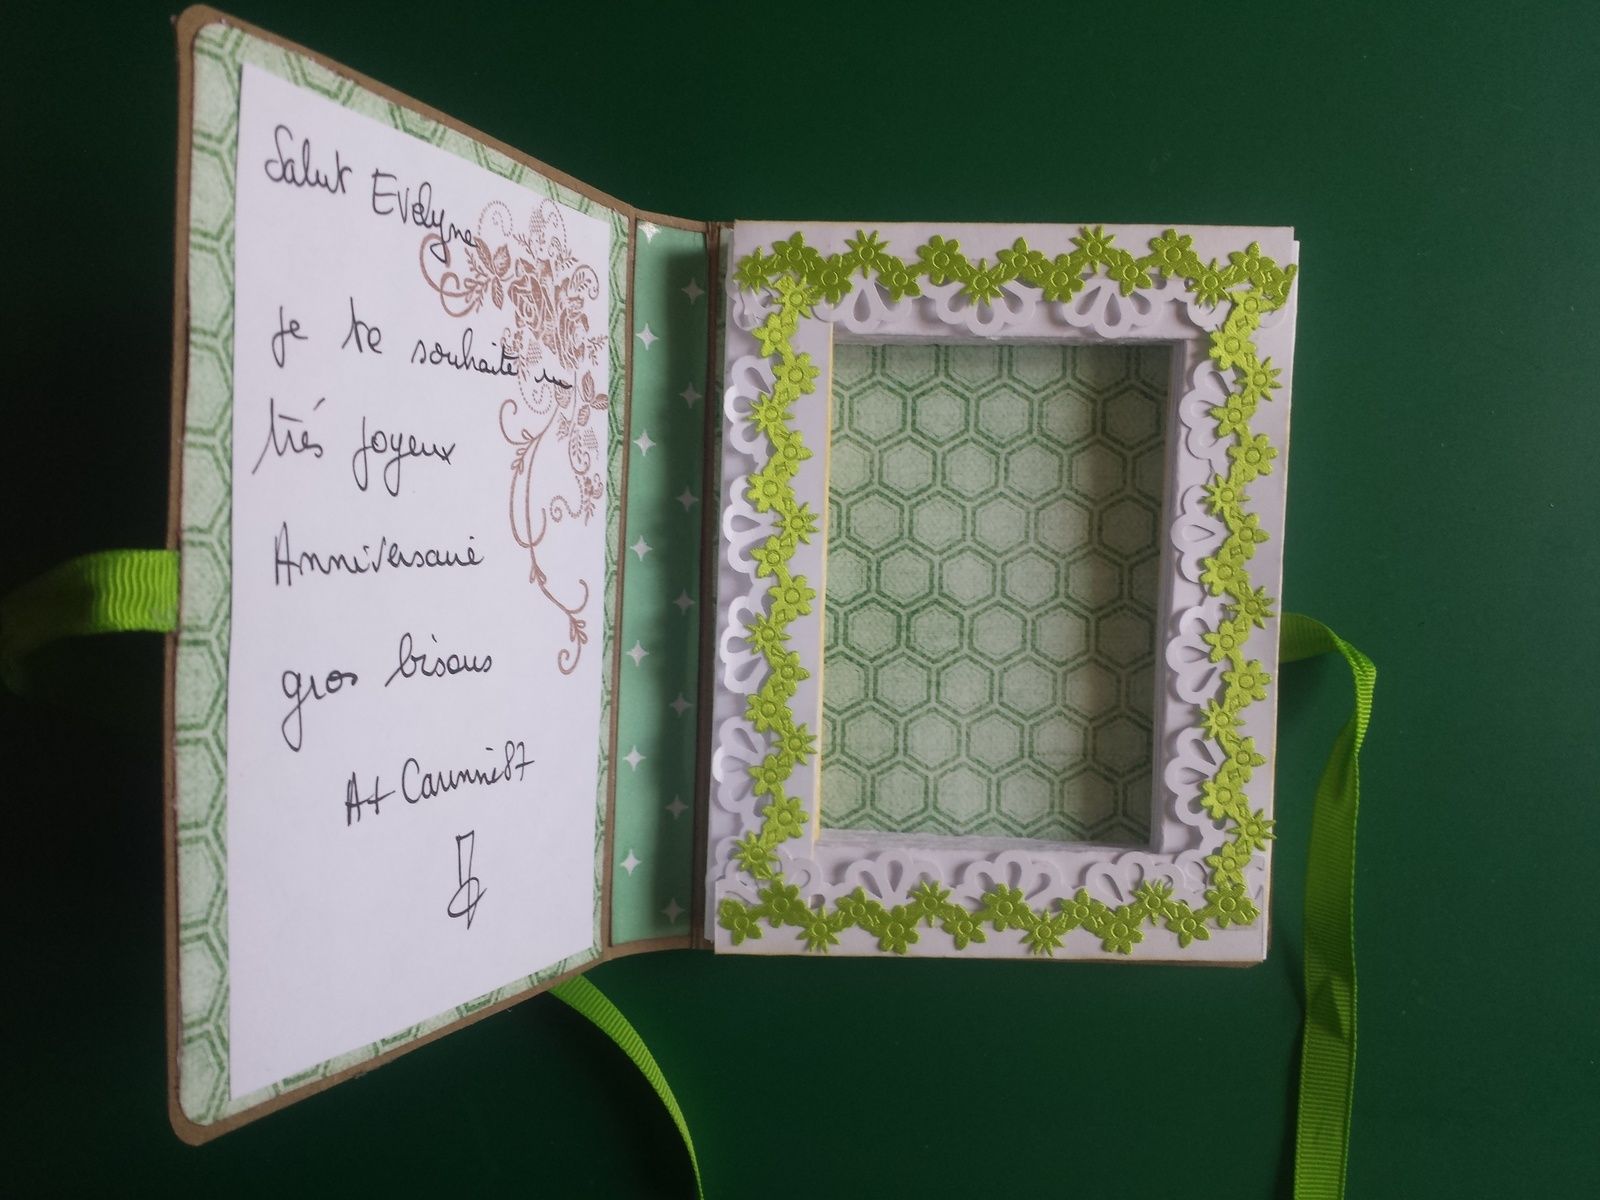 Salut Evelyne
je te souhaite un
très joyeux
Anniversaire
gros bisous
A+ Carinne87